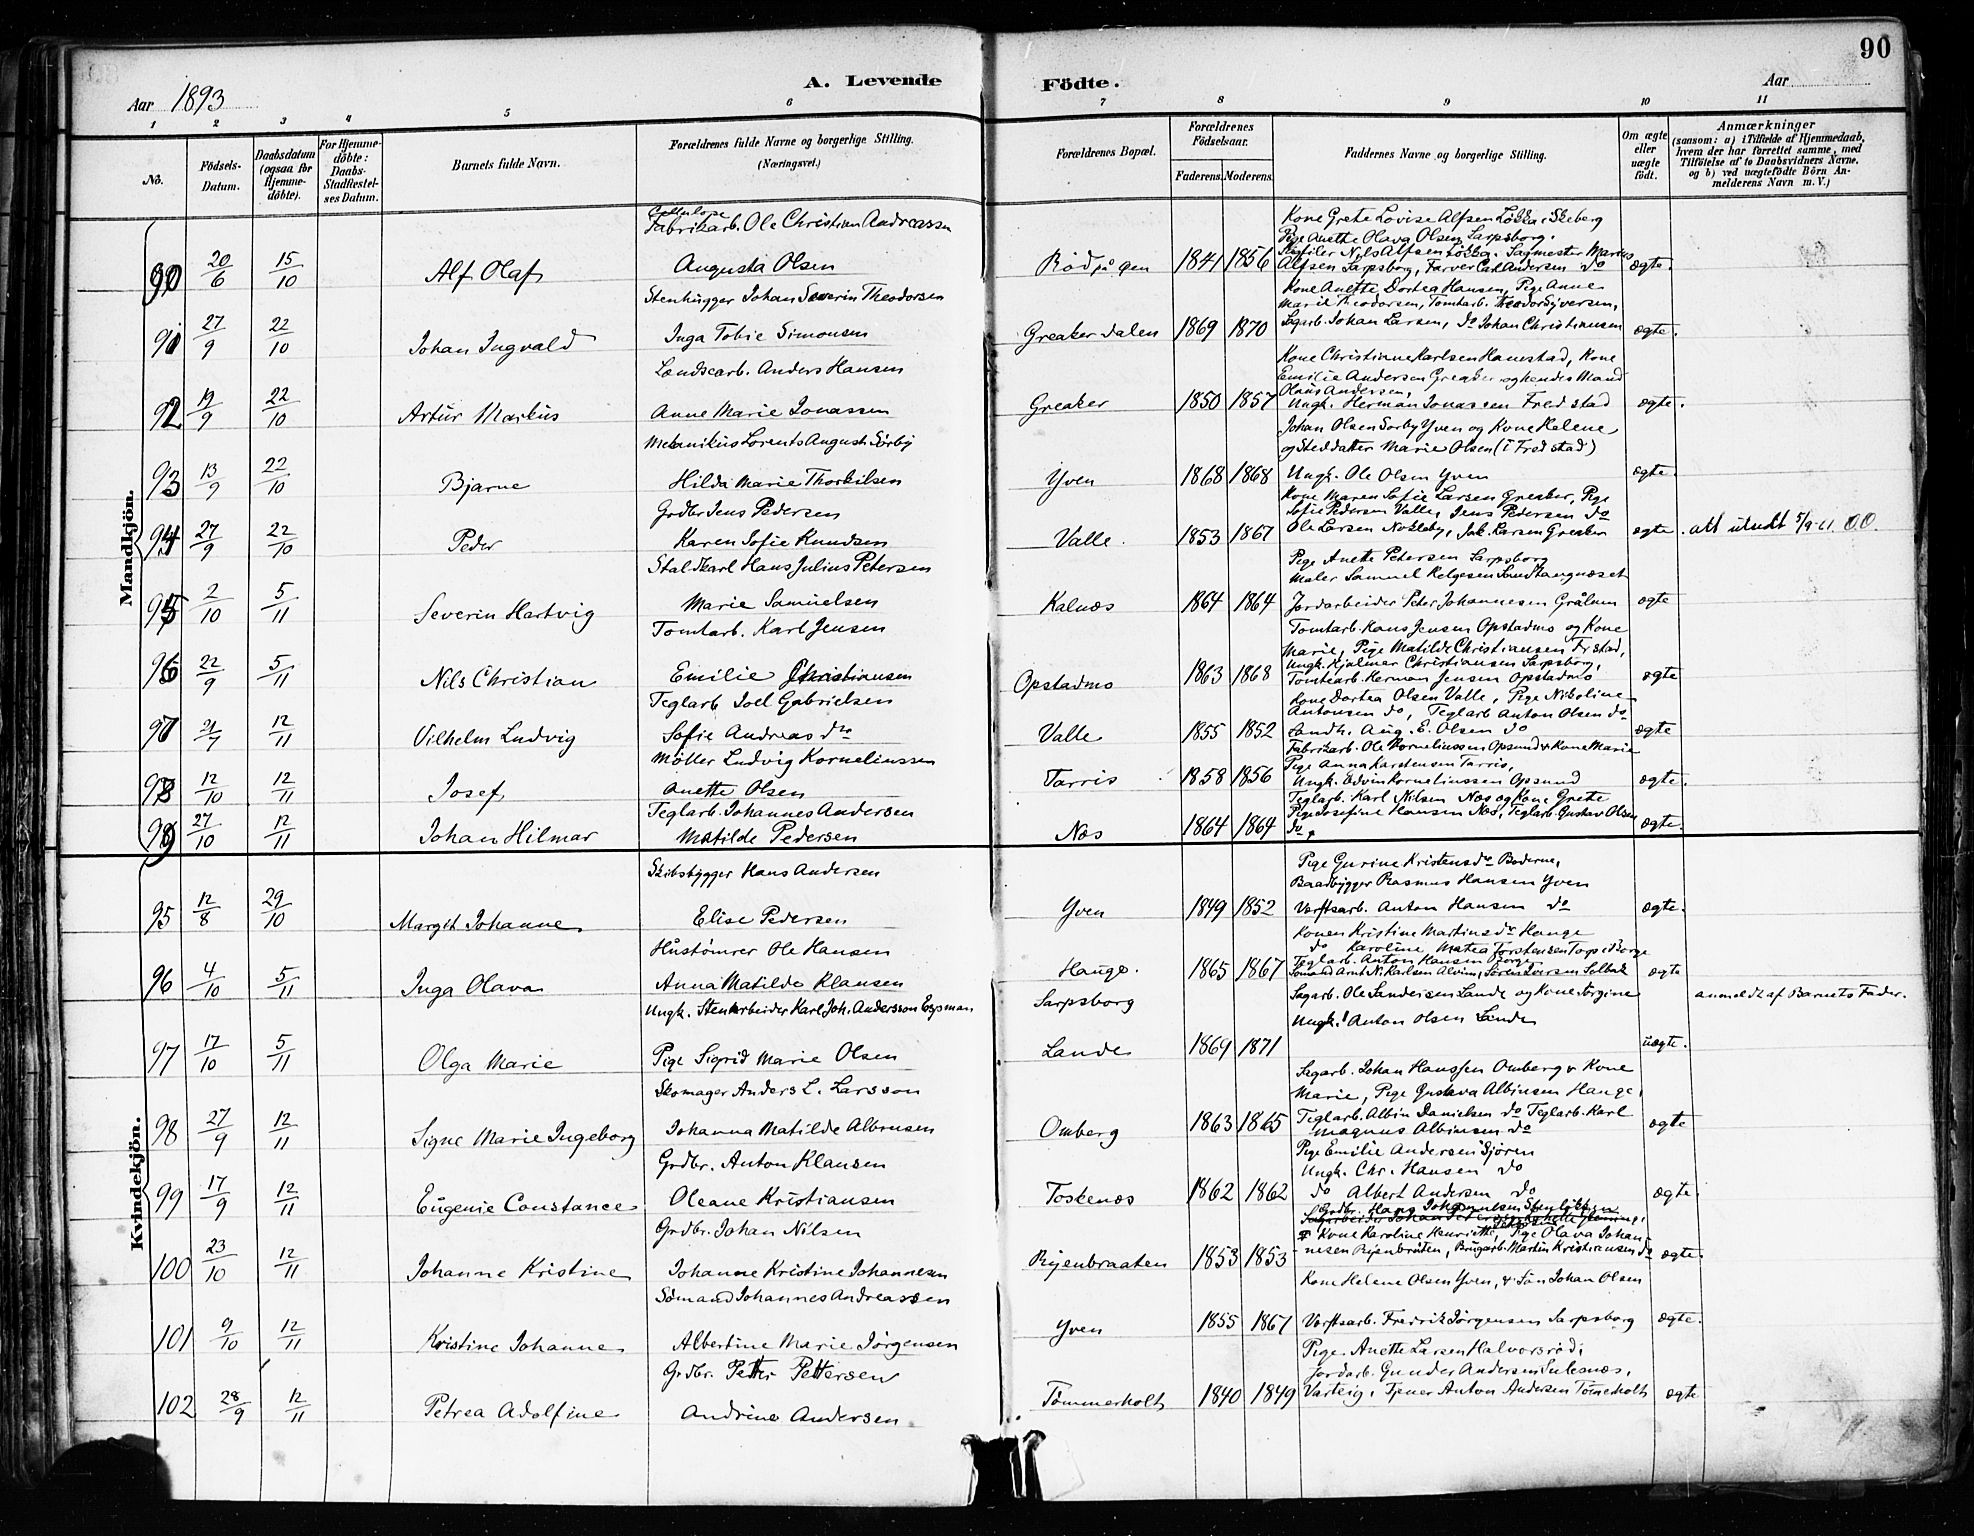 90
Aar 1893
A. Levende Födte.
Aar
1 2 3 4 5 6 7 8 9 10 11
No.
Födsels-Datum.
Daabsdatum (ogsaa for Hjemmedöbte).
For Hjemmedöbte: Daabs-Stadfæstelses Datum.
Barnets fulde Navn.
Forældrenes fulde Navne og borgerlige Stilling. (Næringsvei.)
Forældrenes Bopæl.
Forældrenes Födselsaar.
Faderens. Moderens.
Faddernes Navne og borgerlige Stilling.
Om ægte eller uægte födt.
Anmærkninger
(saasom: a) i Tilfælde af Hjemmedaab, hvem der har forrettet samme, med Tilföielse af to Daabsvidners Navne, og b) ved uægtefödte Börn Anmelderens Navn m. V.)
Mandkjön.
Fabrikarb. Ole Christian Andreassen
Kone Grete Lovise Alfsen Løkka i Skeberg
Pige Anette Olava Olsen Sarpsborg.
90 20/6 15/10 Alf Olaf Augusta Olsen Röd på øen 1841 1856 Nils Alfsen Løkka. Sagmester Marius
Alfsen Sarpsborg, Farver Carl Andersen do ægte.
Stenhugger Johan Severin Theodorsen
Kone Anette Dortea Hansen, Pige Anne
Marie Theodorsen, Tomtarb. Theodor Syversen,
91 27/9 22/10 Johan Ingvald Inga Tobie Simonsen Greaker dalen 1869 1870 Sagarb. Johan Larsen, Do Johan Christiansen ægte.
Landsearb. Anders Hansen
Kone Christiane Karlsen Hannestad, Kone
Emilie Andersen Greaker og hendes Mand
Olaus Andersen,
92 19/9 22/10 Artur Markus Anne Marie Jonassen Greaker 1850 1857 Ungk. Herman Jonassen Fredstad ægte.
Mekanikus Lorents August Sørby
Johan Olsen Sørby Yven og Kone Helene
og Steddatter Marie Olsen (i Fredstad)
93 13/9 22/10 Bjarne Hilda Marie Thorkilsen Yven 1868 1868 Ungk. Ole Olsen Yven ægte.
Grdbr Jens Pedersen
Kone Maren Sofie Larsen Greaker, Pige
Sofie Pedersen Valle, Jens Pedersen do
94 27/9 22/10 Peder Karen Sofie Knudsen Valle. 1853 1867 Ole Larsen Nokleby, Jak. Larsen Greaker ægte. att utsedt 5/9-61. OO.
Staldkarl Hans Julius Petersen
Pige Anette Petersen Sarpsborg
Maler Samuel Helgesen Sandtangneset
95 2/10 5/11 Severin Hartvig Marie Samuelsen Kalnæs 1864 1864 Jordarbeider Peter Johannesen Grålum ægte
Tomtarb. Karl Jensen
Tomtarb. Hans Jensen Opstadmo og Kone
Marie, Pige Matilde Christiansen Frstad,
Ungk. Hjalmar Christiansen Sarpsborg,
96 22/9 5/11 Nils Christian Emilie Christiansen Opstadmo 1863 1868 Tomtearb. Herman Jensen Opstadmo ægte
Teglarb Joel Gabrielsen
Kone Dortea Olsen Valle, Pige Nikoline
Antonsen do, Teglarb Anton Olsen do
97 21/7 12/11 Vilhelm Ludvig Sofie Andreasdr Valle 1855 1852 Landh. Aug. E. Olsen do ægte
Møller Ludvig Korneliussen
Fabrikarb. Ole Korneliussen Opsund & Kone Marie
Pige Anna Karstensen Tarris,
98 12/10 12/11 Josef Anette Olsen Tarris 1858 1856 Ungk. Edvin Korneliussen Opsund ægte.
Teglarb. Johannes Andersen
Teglarb. Karl Nilsen Næs og Kone Grete
99 27/10 12/11 Johan Hilmar Matilde Pedersen Næs 1864 1864 Pige Josefine Hansen Næs, Teglarb. Gustav Olsen do ægte.
Kvindekjön.
Skibsbygger Hans Andersen
Pige Gurine Kristensdr Boderne,
Baadbygger Rasmus Hansen Yven
95 12/8 29/10 Margit Johanne Elise Pedersen Yven 1849 1852 Værftsarb. Anton Hansen do ægte.
Hustømrer Ole Hansen
Konen Kristine Martinsdr Hauge
do Karoline Matea Torstensen Torp i Borge
Teglarb. Anton Hansen Borge
96 4/10 5/11 Inga Olava Anna Matilde Klausen Hauge. 1865 1867 Sømand Arnt N. Karlsen Alvim, Søren Iversen Solbak ægte
Ungk. Stenarbeider Karl Joh. Andersson Espman Sarpsborg
Sagarb. Ole Sandersen Lande og Kone Jorgine anmeldt af Barnets Fader.
Ungk. Anton Olsen Lande
97 17/10 5/11 Olga Marie Pige Sigrid Marie Olsen Lande 1869 1871 uægte.
Skomager Anders L. Larsson
Sagarb. Johan Hanssen Omberg & Kone
Marie, Pige Gustava Albinsen Hauge,
98 27/9 12/11 Signe Marie Ingeborg Johanna Matilde Albinsen Omberg 1863 1865 Teglarb. Albin Danielsen do Teglarb. Karl
Magnus Albinsen do ægte
Grdbr. Anton Klausen
Pige Emilie Andersen Sjøren
Ungk. Chr. Hansen do
99 17/9 12/11 Eugenie Constance Oleane Kristiansen Toskenæs 1862 1862 do Albert Andersen do ægte.
Grdbr. Johan Nilsen
Grdbr. Hans Johannesen Stenløkken
& Kone Karoline Henriette, Pige Olava Johan-
100 23/10 12/11 Johanne Kristine Johanne Kristine Johannesen Ryenbraaten 1853 1853 nesen Ryenbråten, Brugarb. Martin Kristiansen do ægte.
Sømand Johannes Andreassen
Kone Helene Olsen Yven, & Søn Johan Olsen
101 9/10 12/11 Kristine Johanne Albertine Marie Jörgensen Yven 1855 1867 Værftsarb. Fredrik Jörgensen Sarpsborg ægte.
Grdbr. Petter Pettersen
Pige Anette Larsen Halvorsröd,
Jordarb. Gunder Andersen Sulesnæs,
102 28/9 12/11 Petrea Adolfine Andrine Andersen Tömmerholt 1840 1849 Varteig, Tjener Anton Andersen Tömmerholt ægte